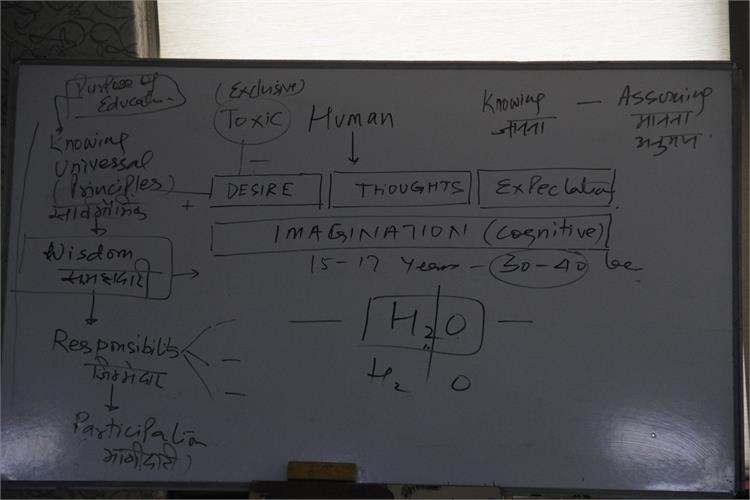 Purpose of
Education
Knowing
Universal
(Principles)
सार्वभौमिक
Wisdom
समझदारी
Responsibility
जिम्मेदारी
Participation
भागीदारी
(Exclusive)
Toxic
Human
Knowing — Assuming
जानना मानना
अनुमान
DESIRE THOUGHTS Expectation
IMAGINATION (cognitive)
15-17 Years - 30-40
H₂O
H₂ O